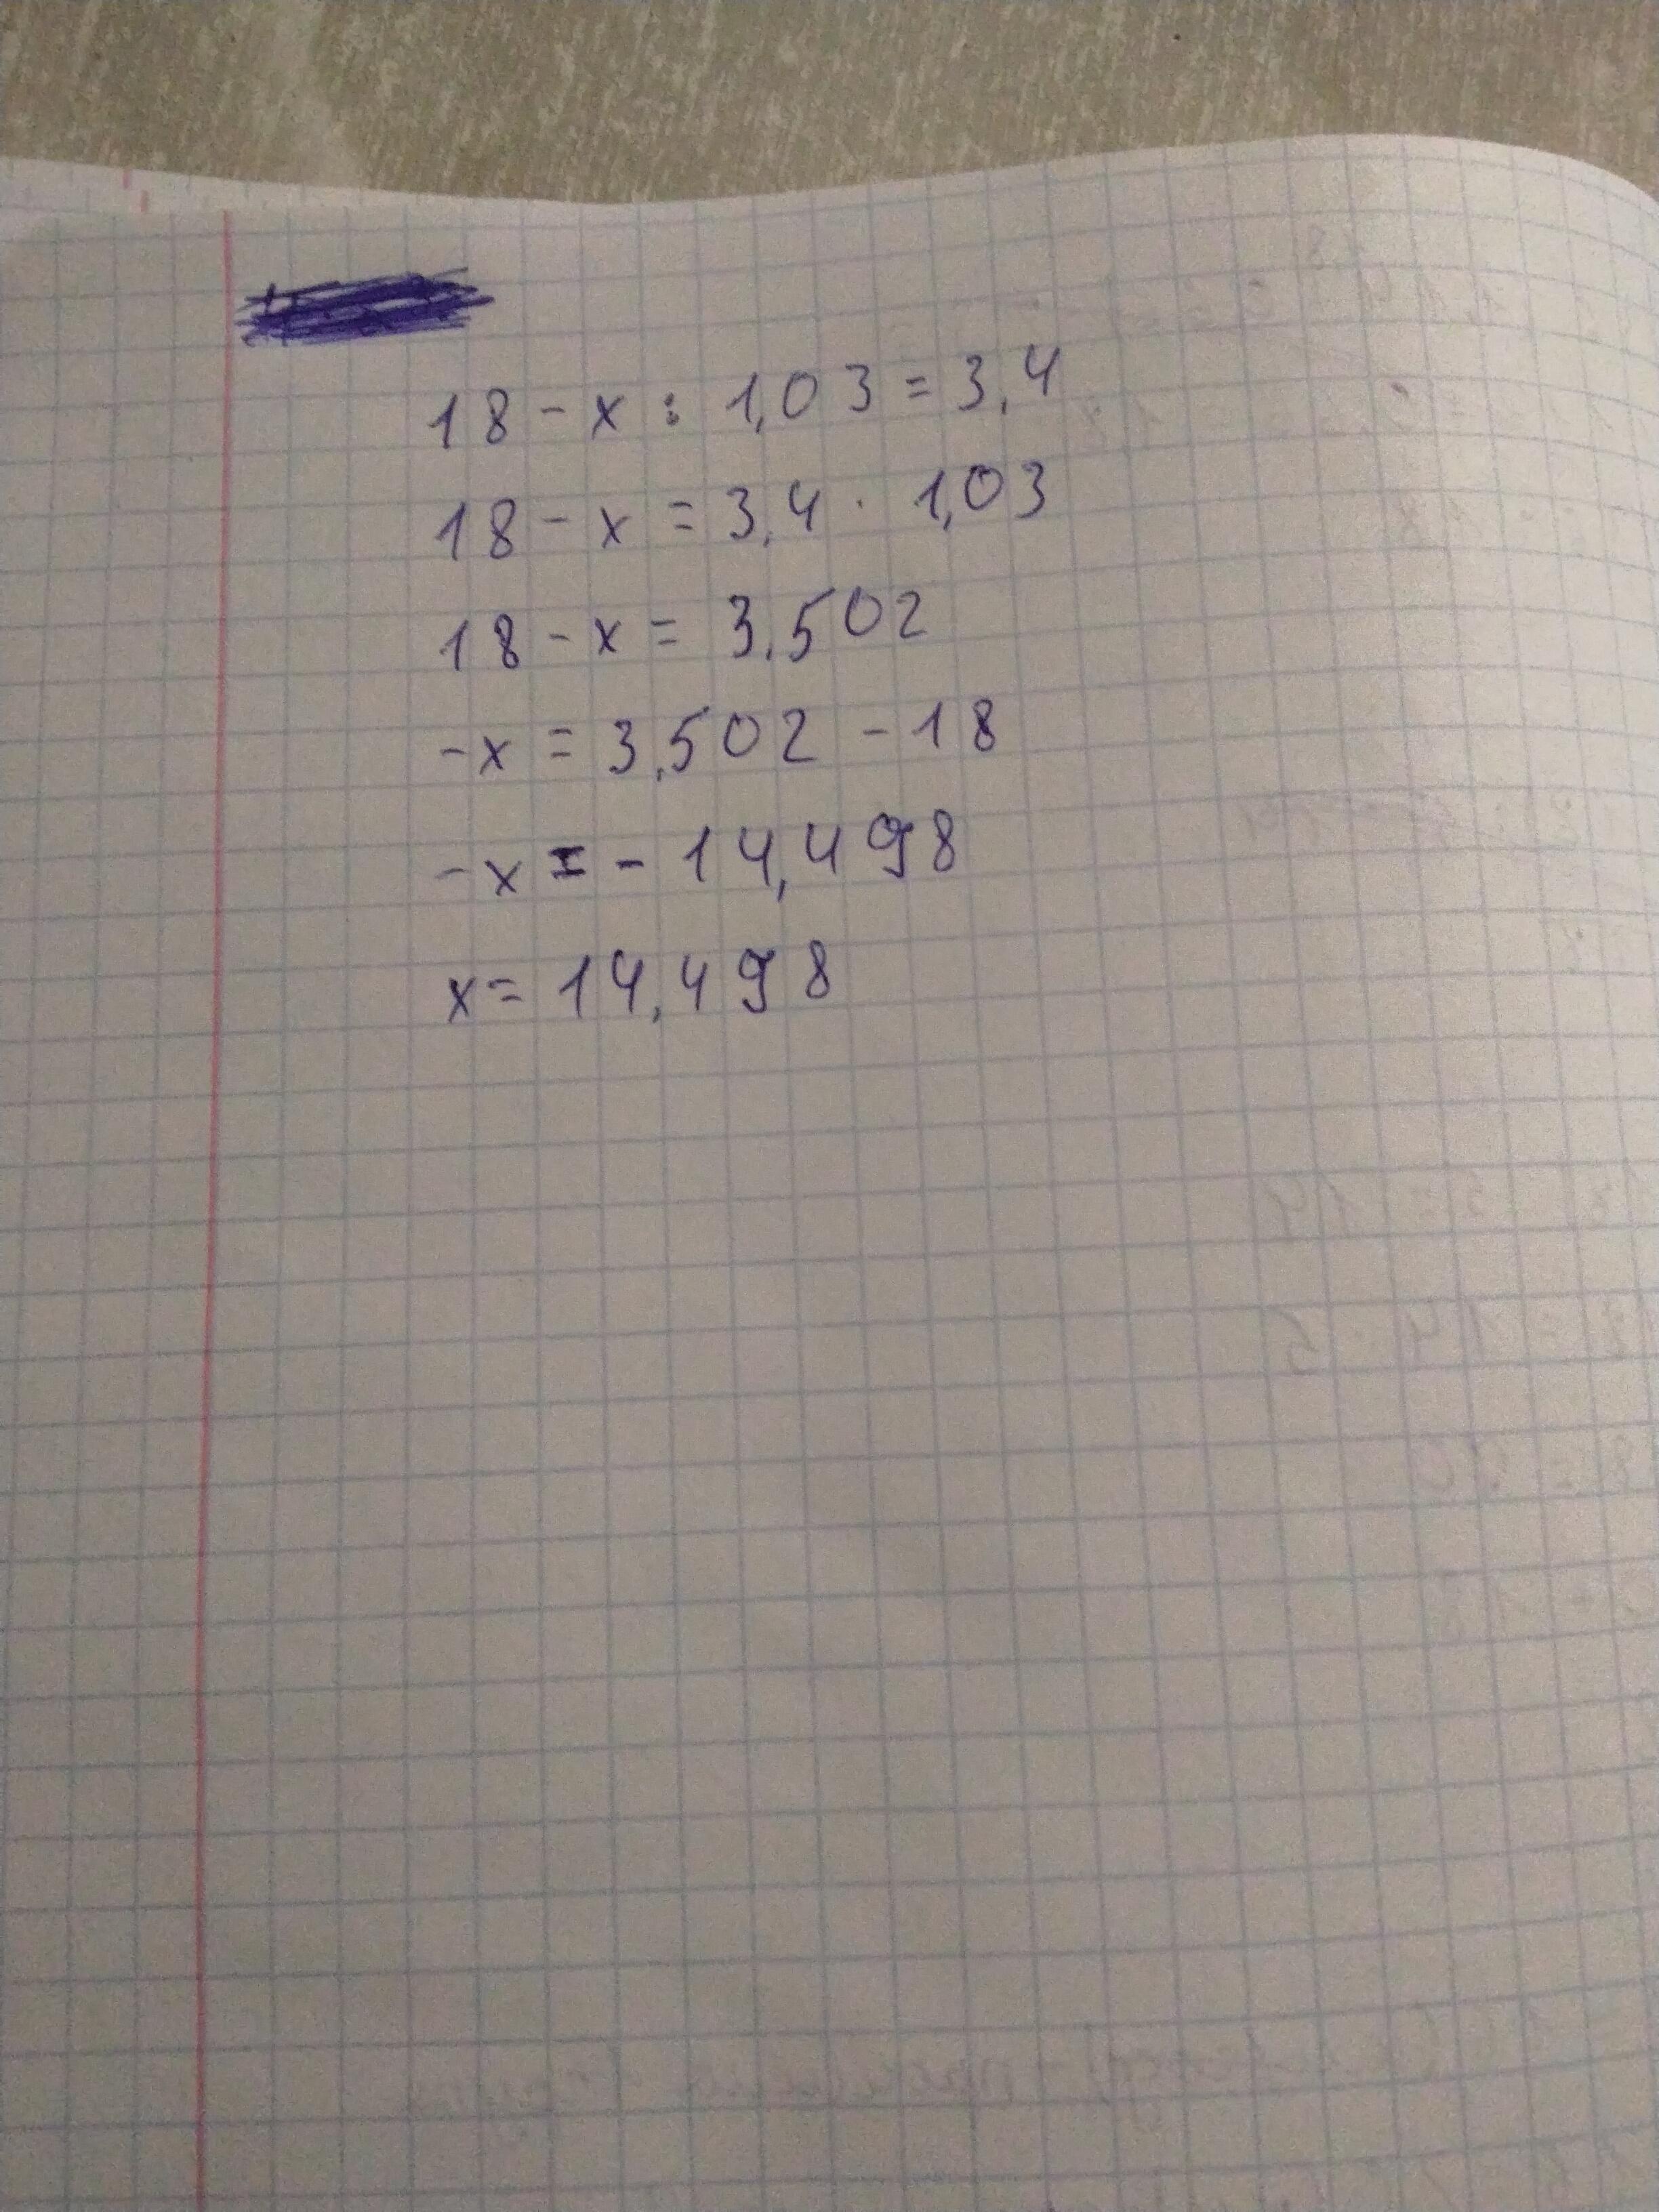 18 - x : 1,03 = 3,4
18 - x = 3,4 · 1,03
18 - x = 3,502
-x = 3,502 - 18
-x = - 14,498
x = 14,498